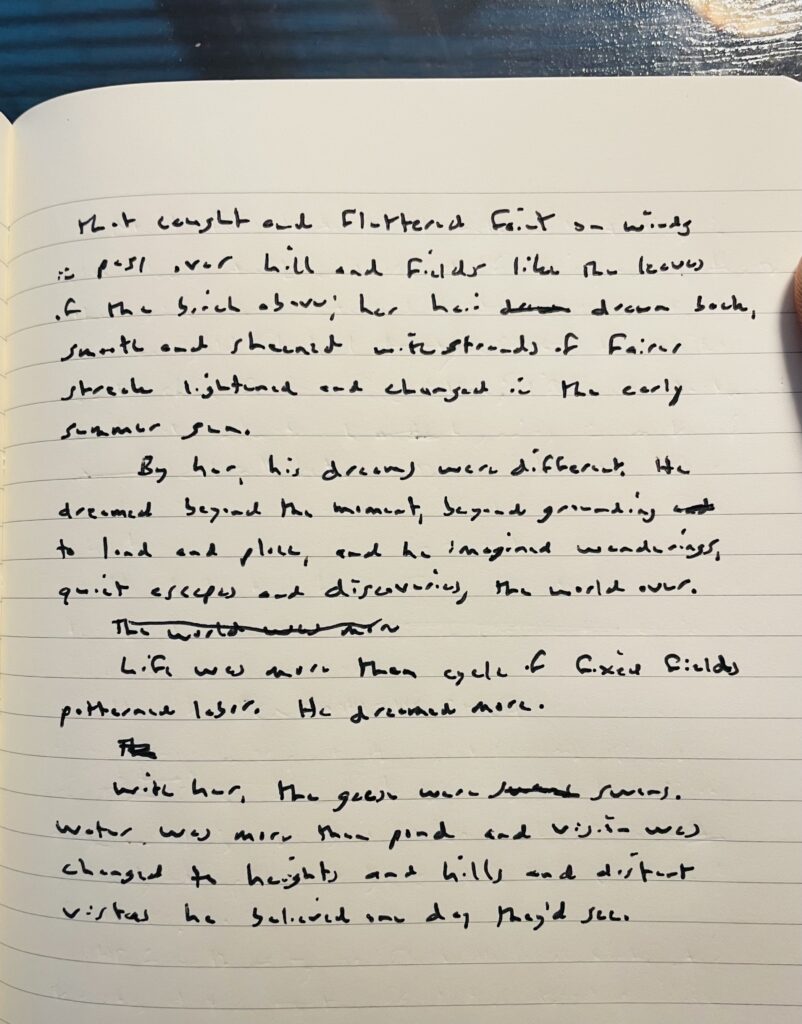 that caught and fluttered faint on winds
in pass over hill and fields like the leaves
of the birch above; her hair drawn back,
smooth and sheened with strands of fairer
streak lightened and changed in the early
summer sun.
By her, his dreams were different. He
dreamed beyond the moment, beyond grounding
to land and place, and he imagined wanderings,
quiet escapes and discoveries, the world over.
The world was more
Life was more than cycle of fixed fields
patterned labor. He dreamed more.
The
With her, the geese were swans.
Water was more than pond and vision was
changed to heights and hills and distant
vistas he believed one day they'd see.